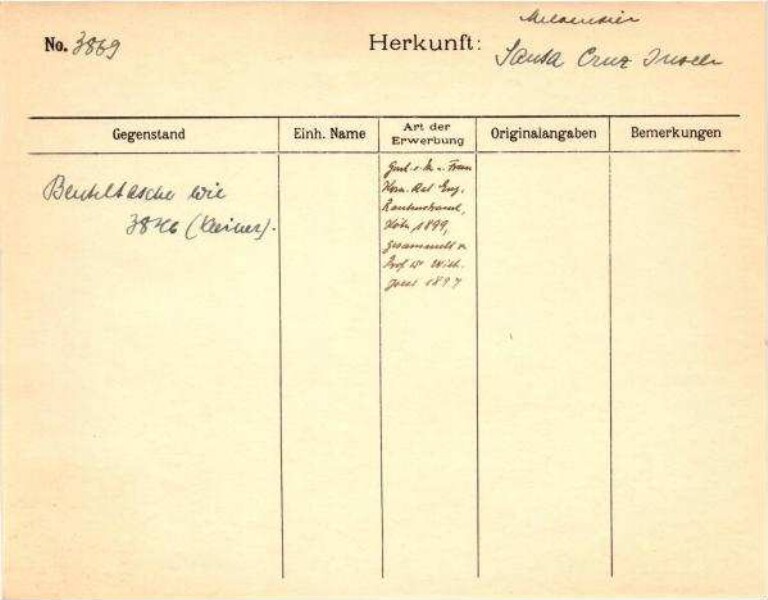 Melanesien
No. 3869
Herkunft:
Santa Cruz Inseln
Gegenstand
Einh. Name
Art der
Erwerbung
Originalangaben
Bemerkungen
Beuteltasche wie
3846 (kleiner).
u. Frau
Kom. Rat Eug.
Rautenstrauch,
Köln, 1899,
gesammelt v.
Prof. Dr. Wilh.
Joest 1897